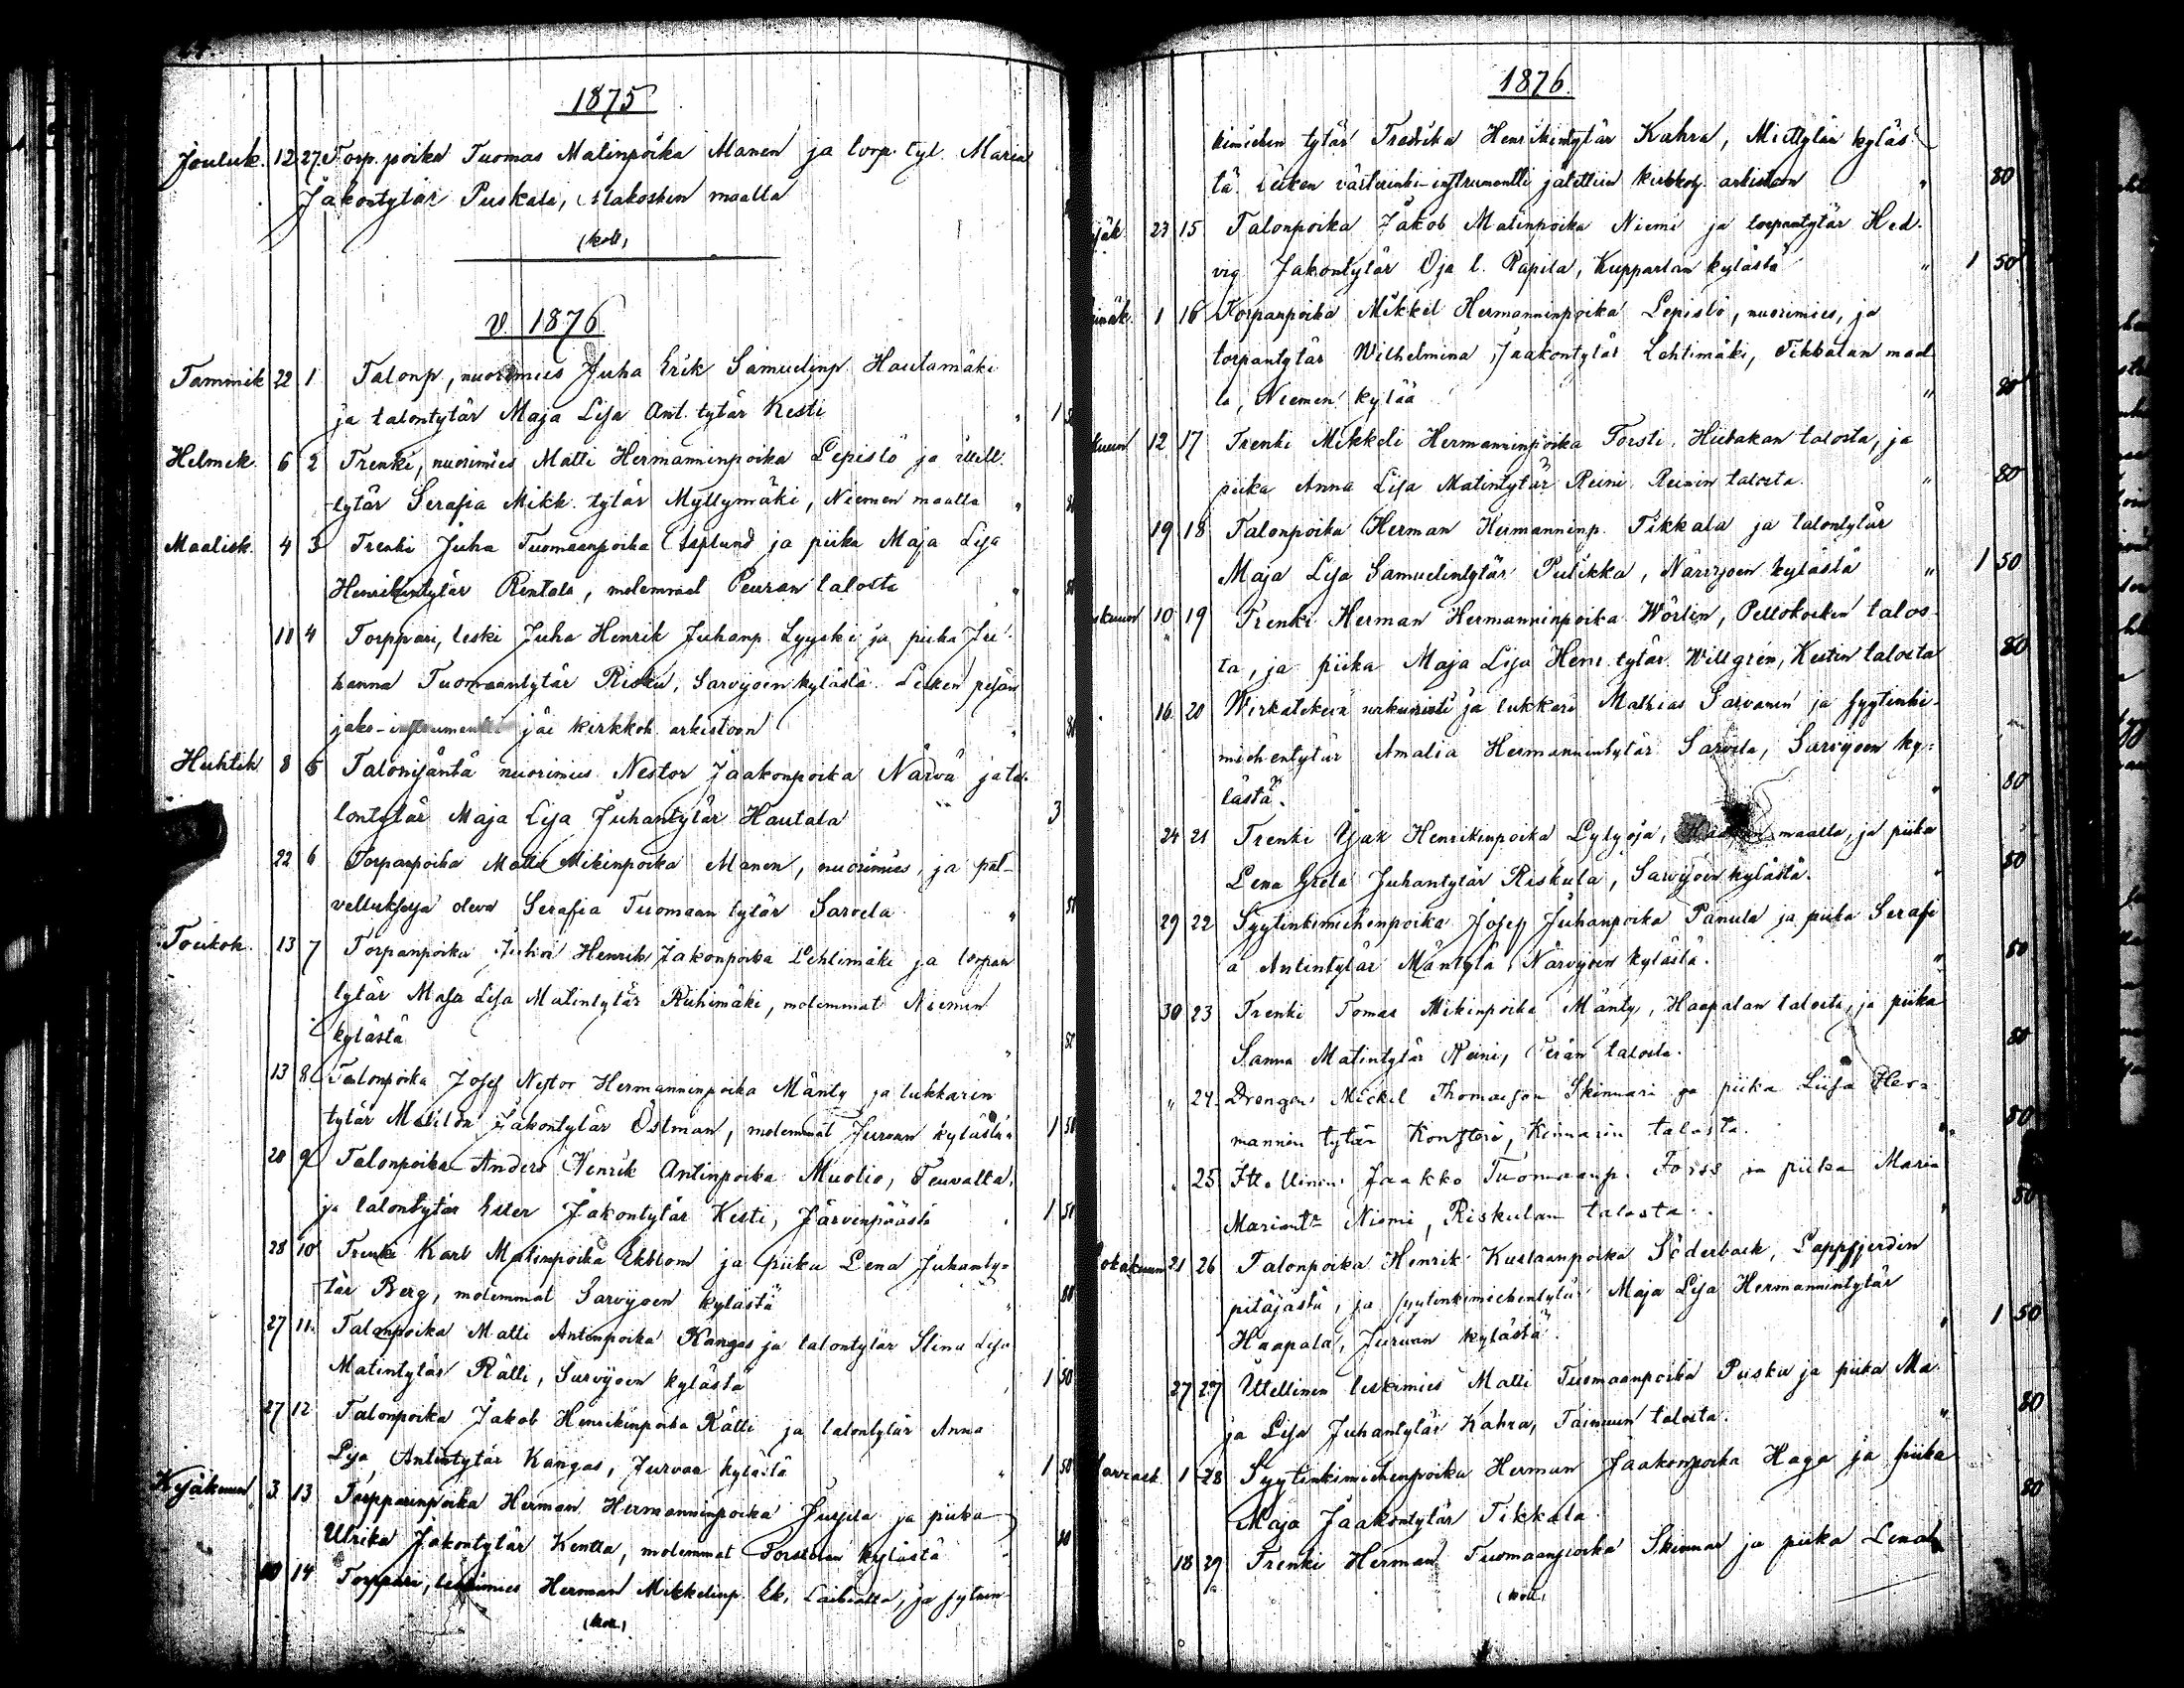 1875
Jouluk. 12 27 Torp. poika Tuomas Matinpoika Manen ja torp. tyt. Maria
Jakontytär Puskala, maalla
(koll)
v. 1876
Tammik 22 1 Talonp, nuorimies Juha Erik Samuelinp. Hautamäki
ja talontytär Maja Lisa Ant. tytär Kesti " 1
Helmik. 6 2 Trenki, nuorimies Matti Hermanninpoika Lepistö ja itell.
tytär Serafia Mikk. tytär Myllymäki, Niemen maalta "
Maalisk. 4 3 Trenki Juha Tuomaanpoika Asplund ja piika Maja Lisa
Henrikintytär Rintala, molemmat Peuran talosta "
11 4 Torppari, leski Juha Henrik Juhanp. Lyyski ja piika Jo
hanna Tuomaantytär Risku, Sarvijoen kylästä. Lesken pesän
jako-instrumentti jäi kirkkoh. arkistoon "
Huhtik 8 5 Talonisäntä nuorimies Nestor Jaakonpoika Närvä ja ta-
lontytär Maja Lisa Juhantytär Hautala " 3
22 6 Torpanpoika Matti Mikinpoika Manen, nuorimies, ja pal-
velluksesa oleva Serafia Tuomaan tytär Sarvela "
Toukok. 13 7 Torpanpoika Juha Henrik Jakonpoika Lehtimäki ja torpan
tytär Maja Lisa Matintytär Riihimäki, molemmat Niemen
kylästä "
13 8 Talonpoika Josef Nestor Hermanninpoika Mänty ja lukkarin
tytär Matilda Jakontytär Östman, molemmat Jurvan kylästä 1 50
28 9 Talonpoika Anders Henrik Antinpoika Muotio, Teuvalta,
ja talontytär Ester Jakontytär Kesti, Järvenpäästä 1 50
28 10 Trenki Karl Matinpoika Ekblom ja piika Lena Juhanty-
tär Berg, molemmat Sarvijoen kylästä " 80
27 11 Talonpoika Matti Antinpoika Kangas ja talontytär Stina Lisa
Matintytär Rätti, Sarvijoen kylästä 1 50
27 12 Talonpoika Jakob Henrikinpoika Rätti ja talontytär Anna
Lisa Antintytär Kangas, Jurvan kylästä " 1 50
Kesäkuun 3 13 Torpparinpoika Herman Hermanninpoika ja piika
Ulrika Jakontytär Kentta, molemmat kylästä 80
14 Torppari, leskimies Herman Mikkelinp. Ek, Laihialta, ja sytnin-
(koll)
1876.
kimiehen tytär Fredrika Henrikintytär Kahra, Miettylän kyläs-
tä. Lesken västerinki-instrumentti jätettiin kirkkoh. arkistoon " 80
23 15 Talonpoika Jakob Matinpoika Niemi ja torpantytär Hed-
vig Jakontytär Oja l. Rapila, Kupparlan kylästä " 1 50
1 16 Torpanpoika Mikkel Hermanninpoika Lepistö, nuorimies, ja
torpantytär Wilhelmina Jaakontytär Lehtimäki, Tikkalan maal
ta, Niemen kylää " 80
12 17 Trenki Mikkeli Hermanninpoika Torsti, talosta, ja
piika Anna Lisa Matintytär Reini Reinin talosta. " 80
19 18 Talonpoika Herman Hermanninp. Tikkala ja talontytär
Maja Lisa Samuelintytär Pulikka, Närvijoen kylästä " 1 50
10 19 Trenki Herman Hermanninpoika Wörlin, talos-
ta, ja piika Maja Lisa Henr. tytär Willgrén, Kestin talosta 80
16 20 Wirkatekevä urkunisti ja lukkari Mathias Sarvanen ja syytinki-
miehentytär Amalia Hermannintytär Sarvela, Sarvijoen ky-
lästä. " 80
24 21 Trenki Isak Henrikinpoika Lylyoja, maalta, ja piika
Lena Greta Juhantytär Riskula, Sarvijoen kylästä. " 80
29 22 Syytinkimiehenpoika Josef Juhanpoika Panula ja piika Serafi
a Antintytär Mäntylä, Närvijoen kylästä. " 80
30 23 Trenki Tomas Mikinpoika Mänty, Haapalan talosta, ja piika
Sanna Matintytär Reini, Perän talosta. 80
" 24 Drengen Mickel Thomasson Skinnari ja piika Liisa Her-
mannin tytär Konsteri, Kinnarin talosta. " 80
" 25 Itellinen Jaakko Tuomaanp. Forss ja piika Maria
Mariantr Niemi, Riskulan talosta. " 80
Lokakuun 21 26 Talonpoika Henrik Kustaanpoika Söderback, Lappfjerdin
pitäjästä, ja syytinkimiehentytär Maja Lisa Hermannintytär
Haapala, Jurvan kylästä. " 1 50
27 27 Itellinen leskimies Matti Tuomaanpoika Puska ja piika Ma-
ja Lisa Juhantytär Kahra, Taimuun talosta. " 80
Marrask. 1 28 Syytinkimiehenpoika Herman Jaakonpoika Haga ja piika
Maja Jaakontytär Tikkala 80
18 29 Trenki Herman Tuomaanpoika Skinnar ja piika Lena
(koll)